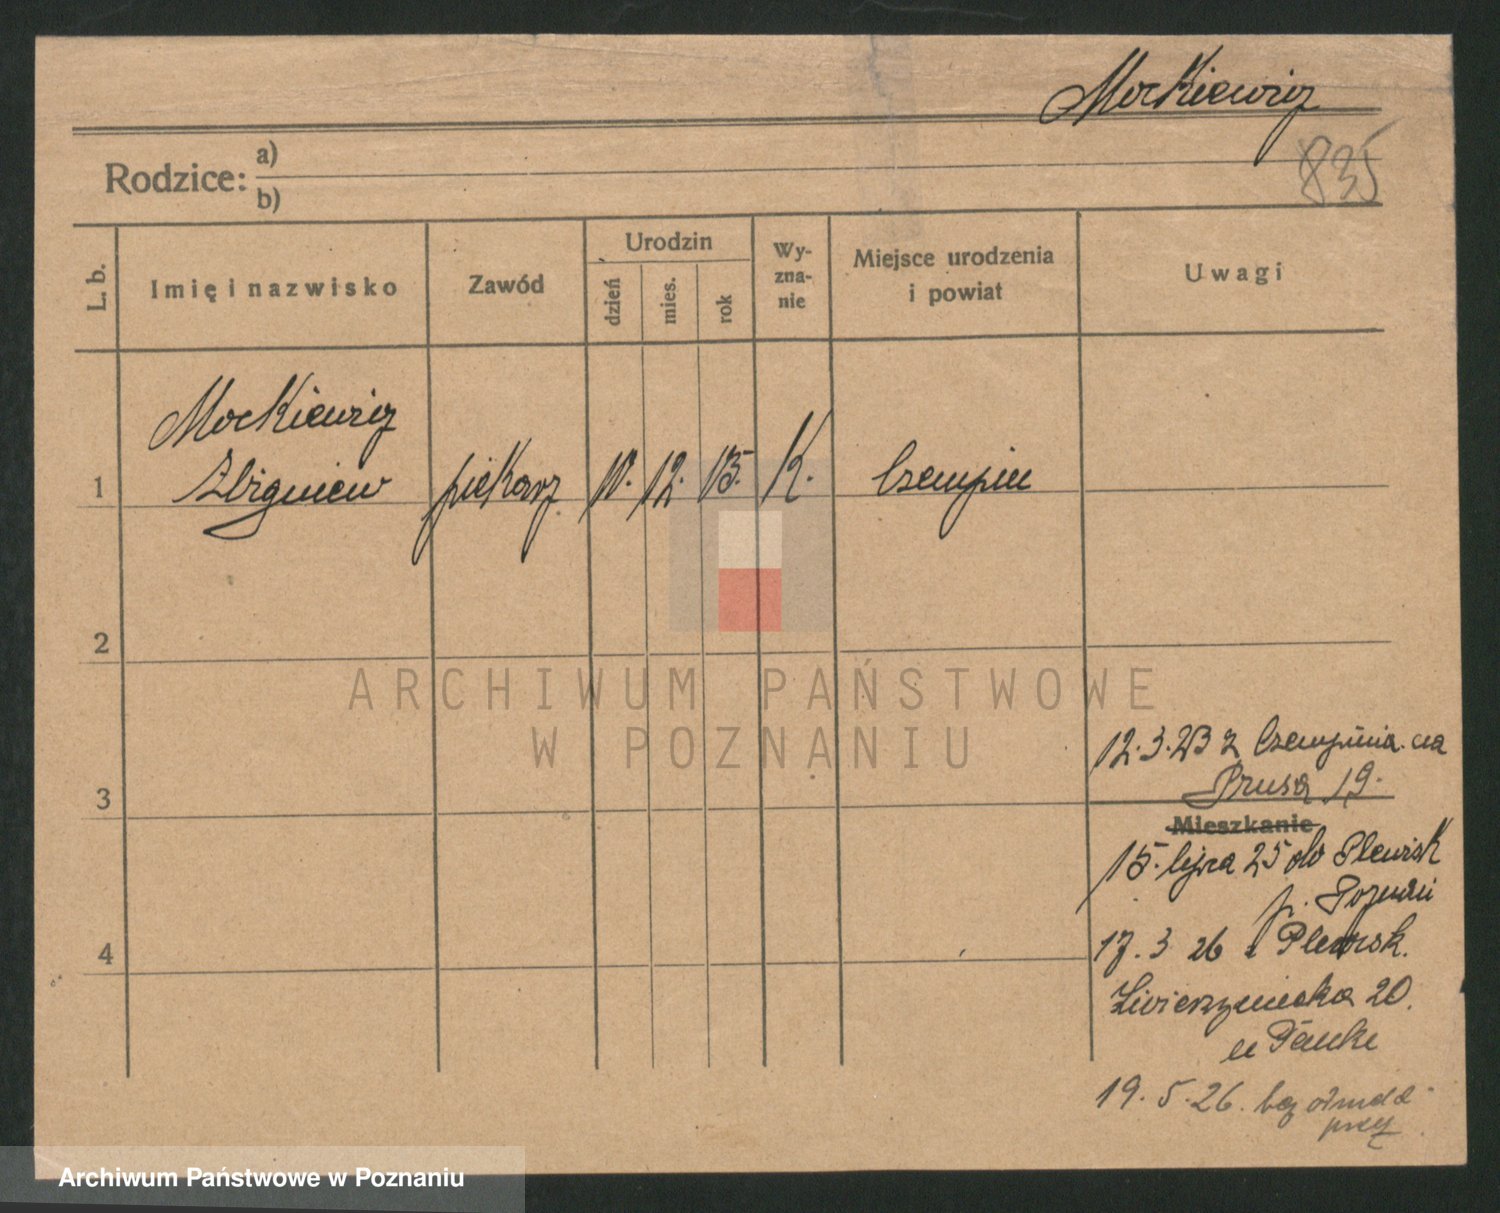 Mockiewicz
835
Rodzice:
a)
b)
L. b.
Imię i nazwisko
Zawód
Urodzin
dzień
mies.
rok
Wy-
zna-
nie
Miejsce urodzenia
i powiat
Uwagi
Mockiewicz
1
Zbigniew
piekarz
10.
12.
15.
K.
Czempiń
2
ARCHIWUM PAŃSTWOWE
W POZNANIU
12.3.23 z Czempinia na
Prusa 19.
3
Mieszkanie
15. lipca 25 do Plewisk
p. Poznań
4
17. 3 26 z Plewisk.
Zwierzyniecka 20.
u
19. 5. 26. bez
Archiwum Państwowe w Poznaniu